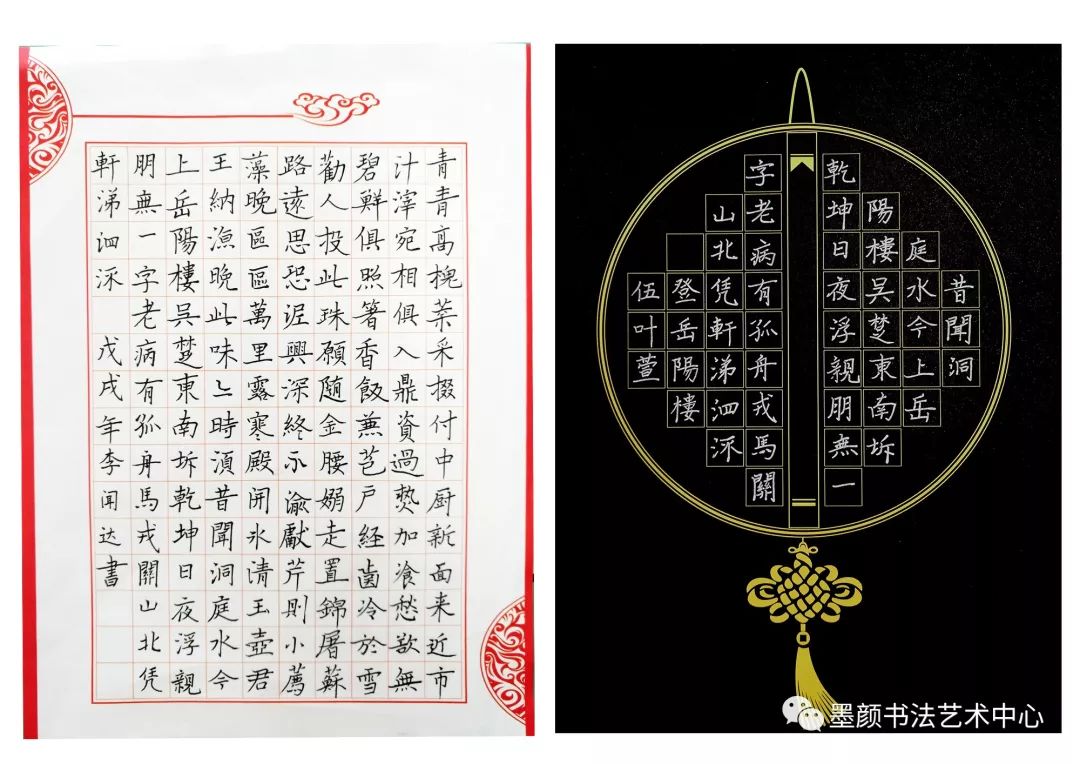 青青高槐葉采掇付中厨新面来近市
汁滓宛相俱入鼎資過熱加飡愁欲無
碧鮮俱照箸香飯蒹芭戸経歯冷於雪
勸人投此珠願随金腰娟走置錦屠蘇
路遠思恐泥興深終不渝獻芹則小薦
藻晚區區萬里露寒殿開氷清玉壺君
王納涼晚此味亦時湏昔聞洞庭水今
上岳陽樓吴楚東南坼乾坤日夜浮親
朋無一字老病有孤舟馬戎關山北凭
軒涕泗流 戊戌年李闻达書
昔聞洞
庭水今上岳
陽樓吴楚東南坼
乾坤日夜浮親朋無一
字老病有孤舟戎馬關
山北凭軒涕泗流
登岳陽樓
伍叶萱
墨颜书法艺术中心